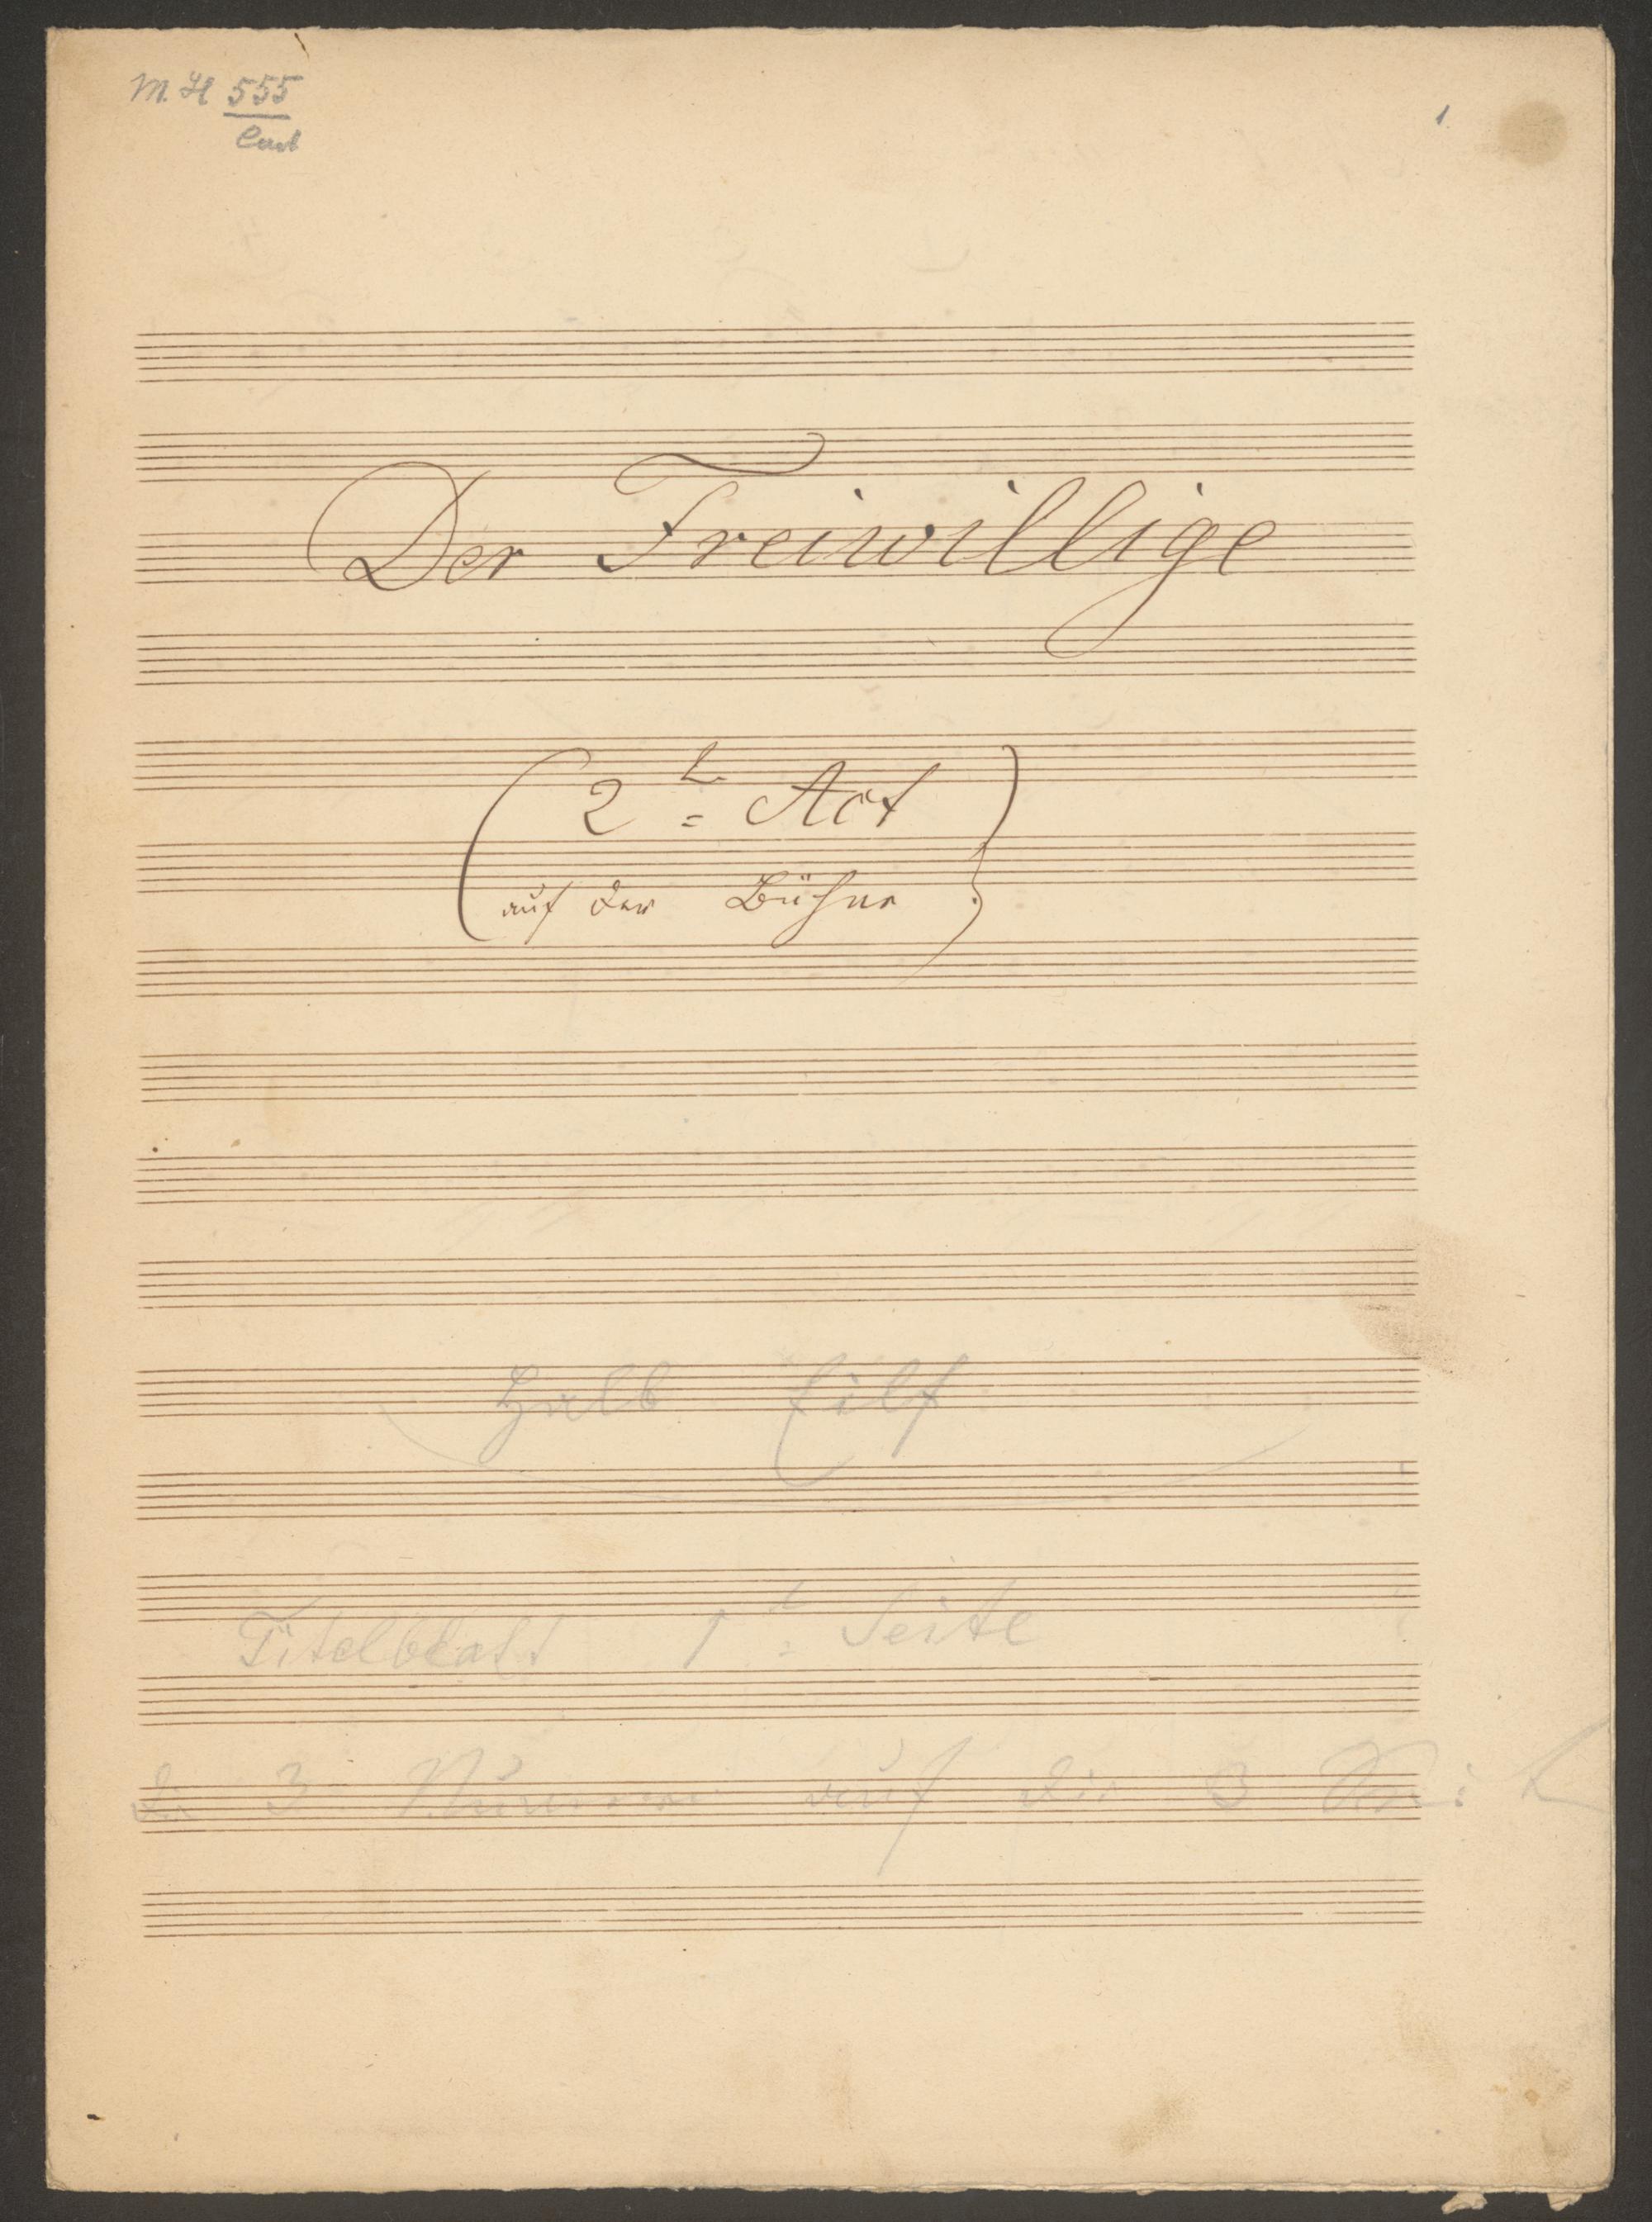 M. H 555
1
Der Freiwillige
(2t= Act
auf der Bühne)
Halb Eilf
Titelblatt 1t= Seite
die 3 Nummern auf die 3